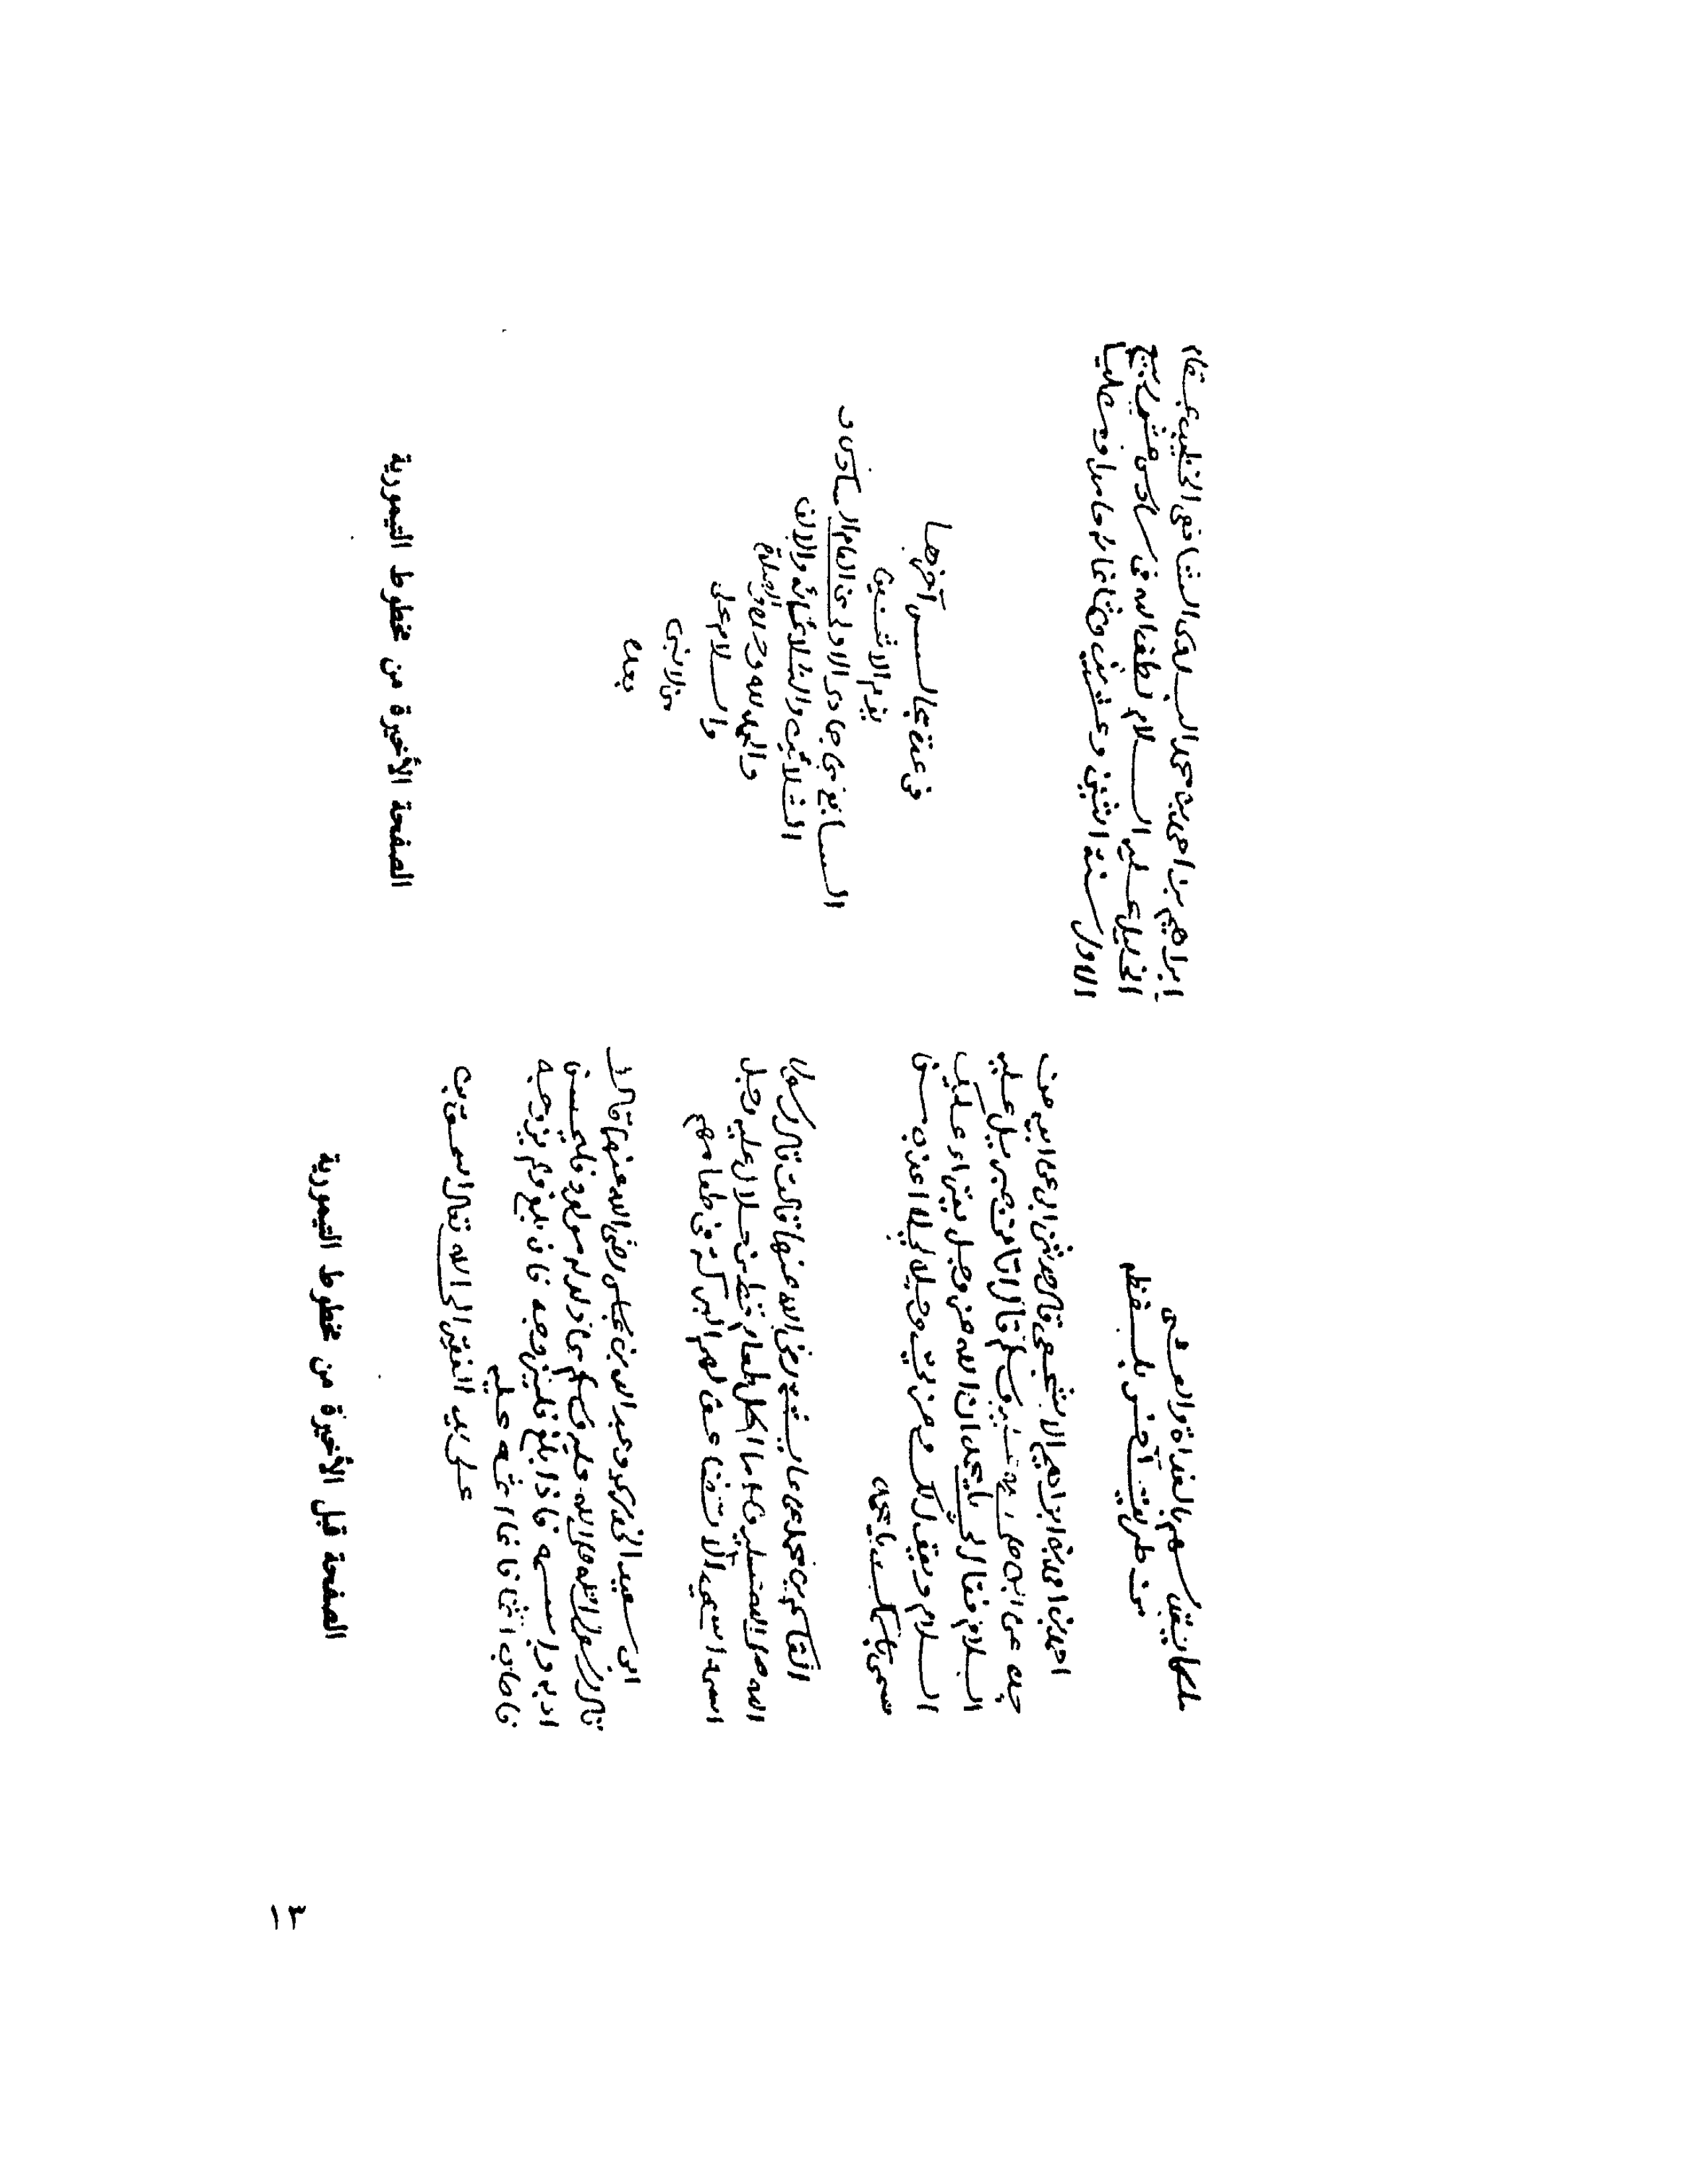 بالغداة والعشى
من طريق آخر بلفظه
احمد بن ابراهيم الاشجعي قال حدثني ابي عن ابيه عن
جده عن النبي قال اتاني جبريل عليه
السلام فقال لي يا محمد ان الله عز وجل يقراء عليك
السلام ويقول لك وعزتي وجلالي لا اعذب من
سمي باسمك يا محمد
القاسم بن محمد عن عايشة رضي الله عنها قالت قال رسول
الله صلى الله عليه وسلم ما اكل طعام قط من حلال عليه رجل
اسمه اسمي الا تضاعف لهم البركة في طعامهم
ابي سعيد الخدري وعبد الله بن عباس رضي الله عنهما قال
قال رسول الله صلى الله عليه وسلم من ولد له مولود فليحسن
ادبه واسمه فاذا بلغ فليزوجه فان بلغ ولم يزوجه
فاصاب اثما فانما اثمه عليه
على يد الفقير الى الله تعالى
الصفحة قبل الأخيرة من مخطوط التيمورية
ابراهيم بن احمد بن محمد الشافعي الخطيب بمقام
الخليل عليه السلام لطف الله به في سادس عشر ربيع
الاول سنة اثنين وعشرين حامدا ومصليا
في عدة مجالس آخرها
يوم الاثنين
السابع من جمادى الاولى من العام السادس و
الثلاثين والثلاثمائة والالف
والحمد لله وحده والصلاة
والسلام على
من لا نبي
بعده
الصفحة الأخيرة من مخطوط التيمورية
١٣